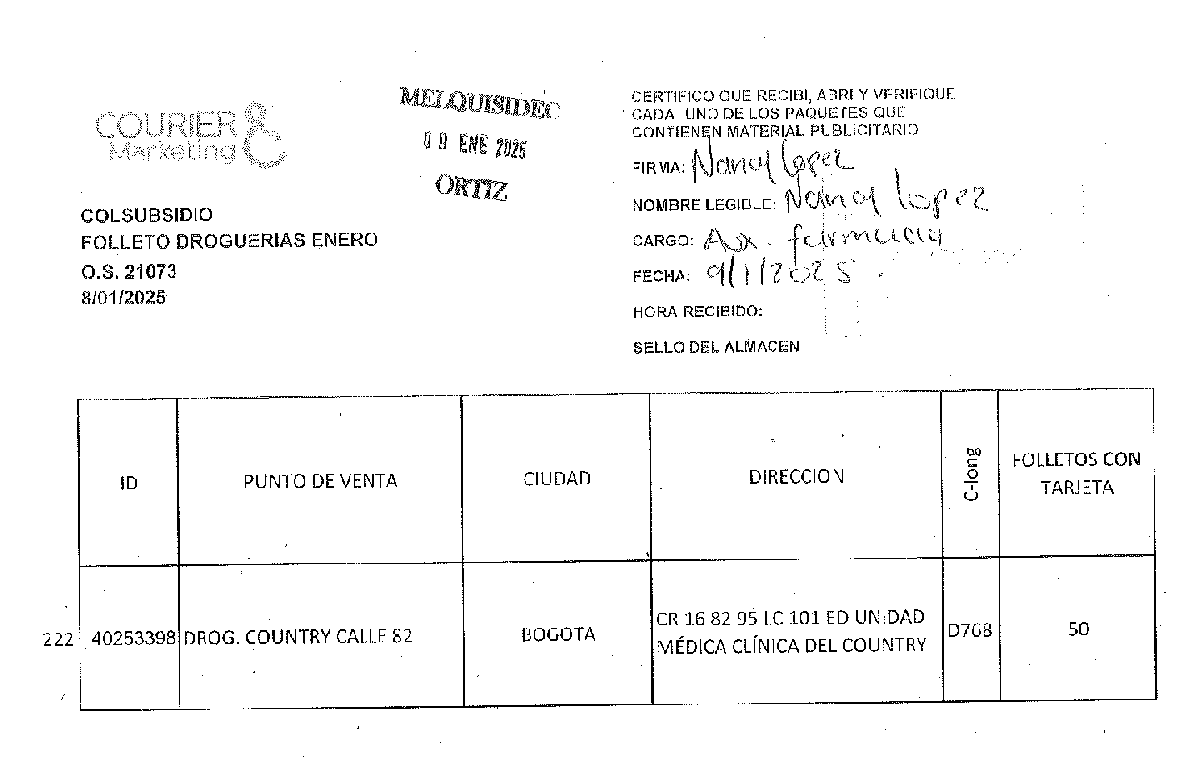 COURIER
Marketing
MELQUISIDEC
09 ENE 2025
ORTIZ
CERTIFICO QUE RECIBI, ABRI Y VERIFIQUE
CADA UNO DE LOS PAQUETES QUE
CONTIENEN MATERIAL PUBLICITARIO
FIRMA: Nancy Lopez
NOMBRE LEGIBLE: Nancy Lopez
CARGO: Aux. farmacia
FECHA: 9/1/2025
HORA RECIBIDO:
SELLO DEL ALMACEN
COLSUBSIDIO
FOLLETO DROGUERIAS ENERO
O.S. 21073
8/01/2025
ID PUNTO DE VENTA CIUDAD DIRECCION C-long FOLLETOS CON TARJETA
222 40253398 DROG. COUNTRY CALLE 82 BOGOTA CR 16 82 95 LC 101 ED UNIDAD MÉDICA CLÍNICA DEL COUNTRY D768 50